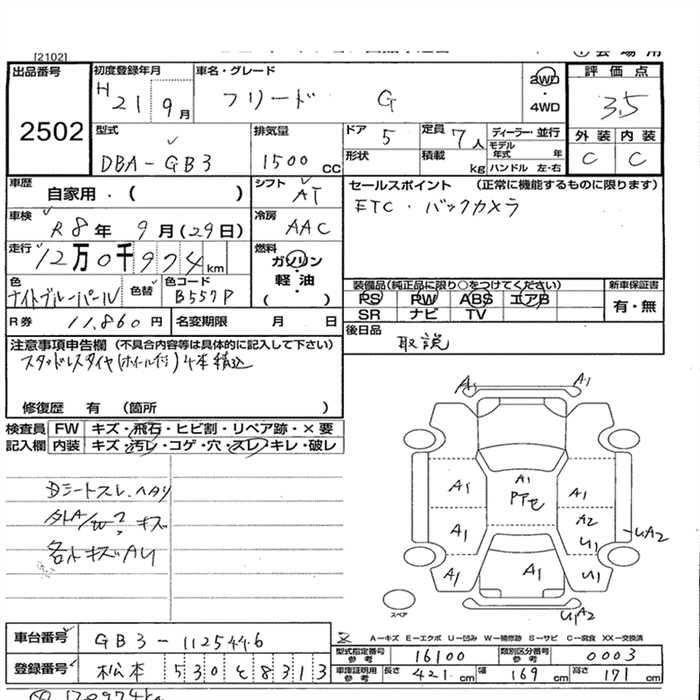 [2102]
出品番号
2502
初度登録年月
H 21 9月
車名・グレード
フリード G
2WD
・
4WD
評価点
3.5
外装 内装
C C
型式
DBA-GB3
排気量
1500 CC
ドア 5
形状
定員 7人
積載 kg
ディーラー・並行
モデル年式 年
ハンドル 左・右
車歴
自家用・( )
シフト AT
車検
R8年 9月(29日)
冷房 AAC
走行
12万0千974km
燃料
ガソリン
・
軽油
( )
色
ナイトブルーパール
色替
色コード
B557P
R券 11,860円
名変期限 月 日
セールスポイント (正常に機能するものに限ります)
ETC・バックカメラ
装備品(純正品に限り○をつけてください)
PS PW ABS エアB
SR ナビ TV
新車保証書
有・無
後日品
取説
注意事項申告欄(不具合内容等は具体的に記入して下さい)
スタッドレスタイヤ(ホイール付)4本積込
修復歴 有 (箇所 )
検査員記入欄
FW キズ・飛石・ヒビ割・リペア跡・×要
内装 キズ・汚レ・コゲ・穴・スレ・キレ・破レ
Dシートスレ、ヘタリ
外A/W2 キズ
各小キズAU
A1 A1
A1 A1 A1
A1 A2
U1
UA2
A1 A1 U1
UA2
スペア
A-キズ E-エクボ U-凹み W-補修跡 S-サビ C-腐食 XX-交換済
車台番号
GB3-1125446
登録番号
松本 530 と 8313
型式指定番号 参考 16100
類別区分番号 参考 0003
車庫証明用 参考 長さ 421cm 幅 169cm 高さ 171cm